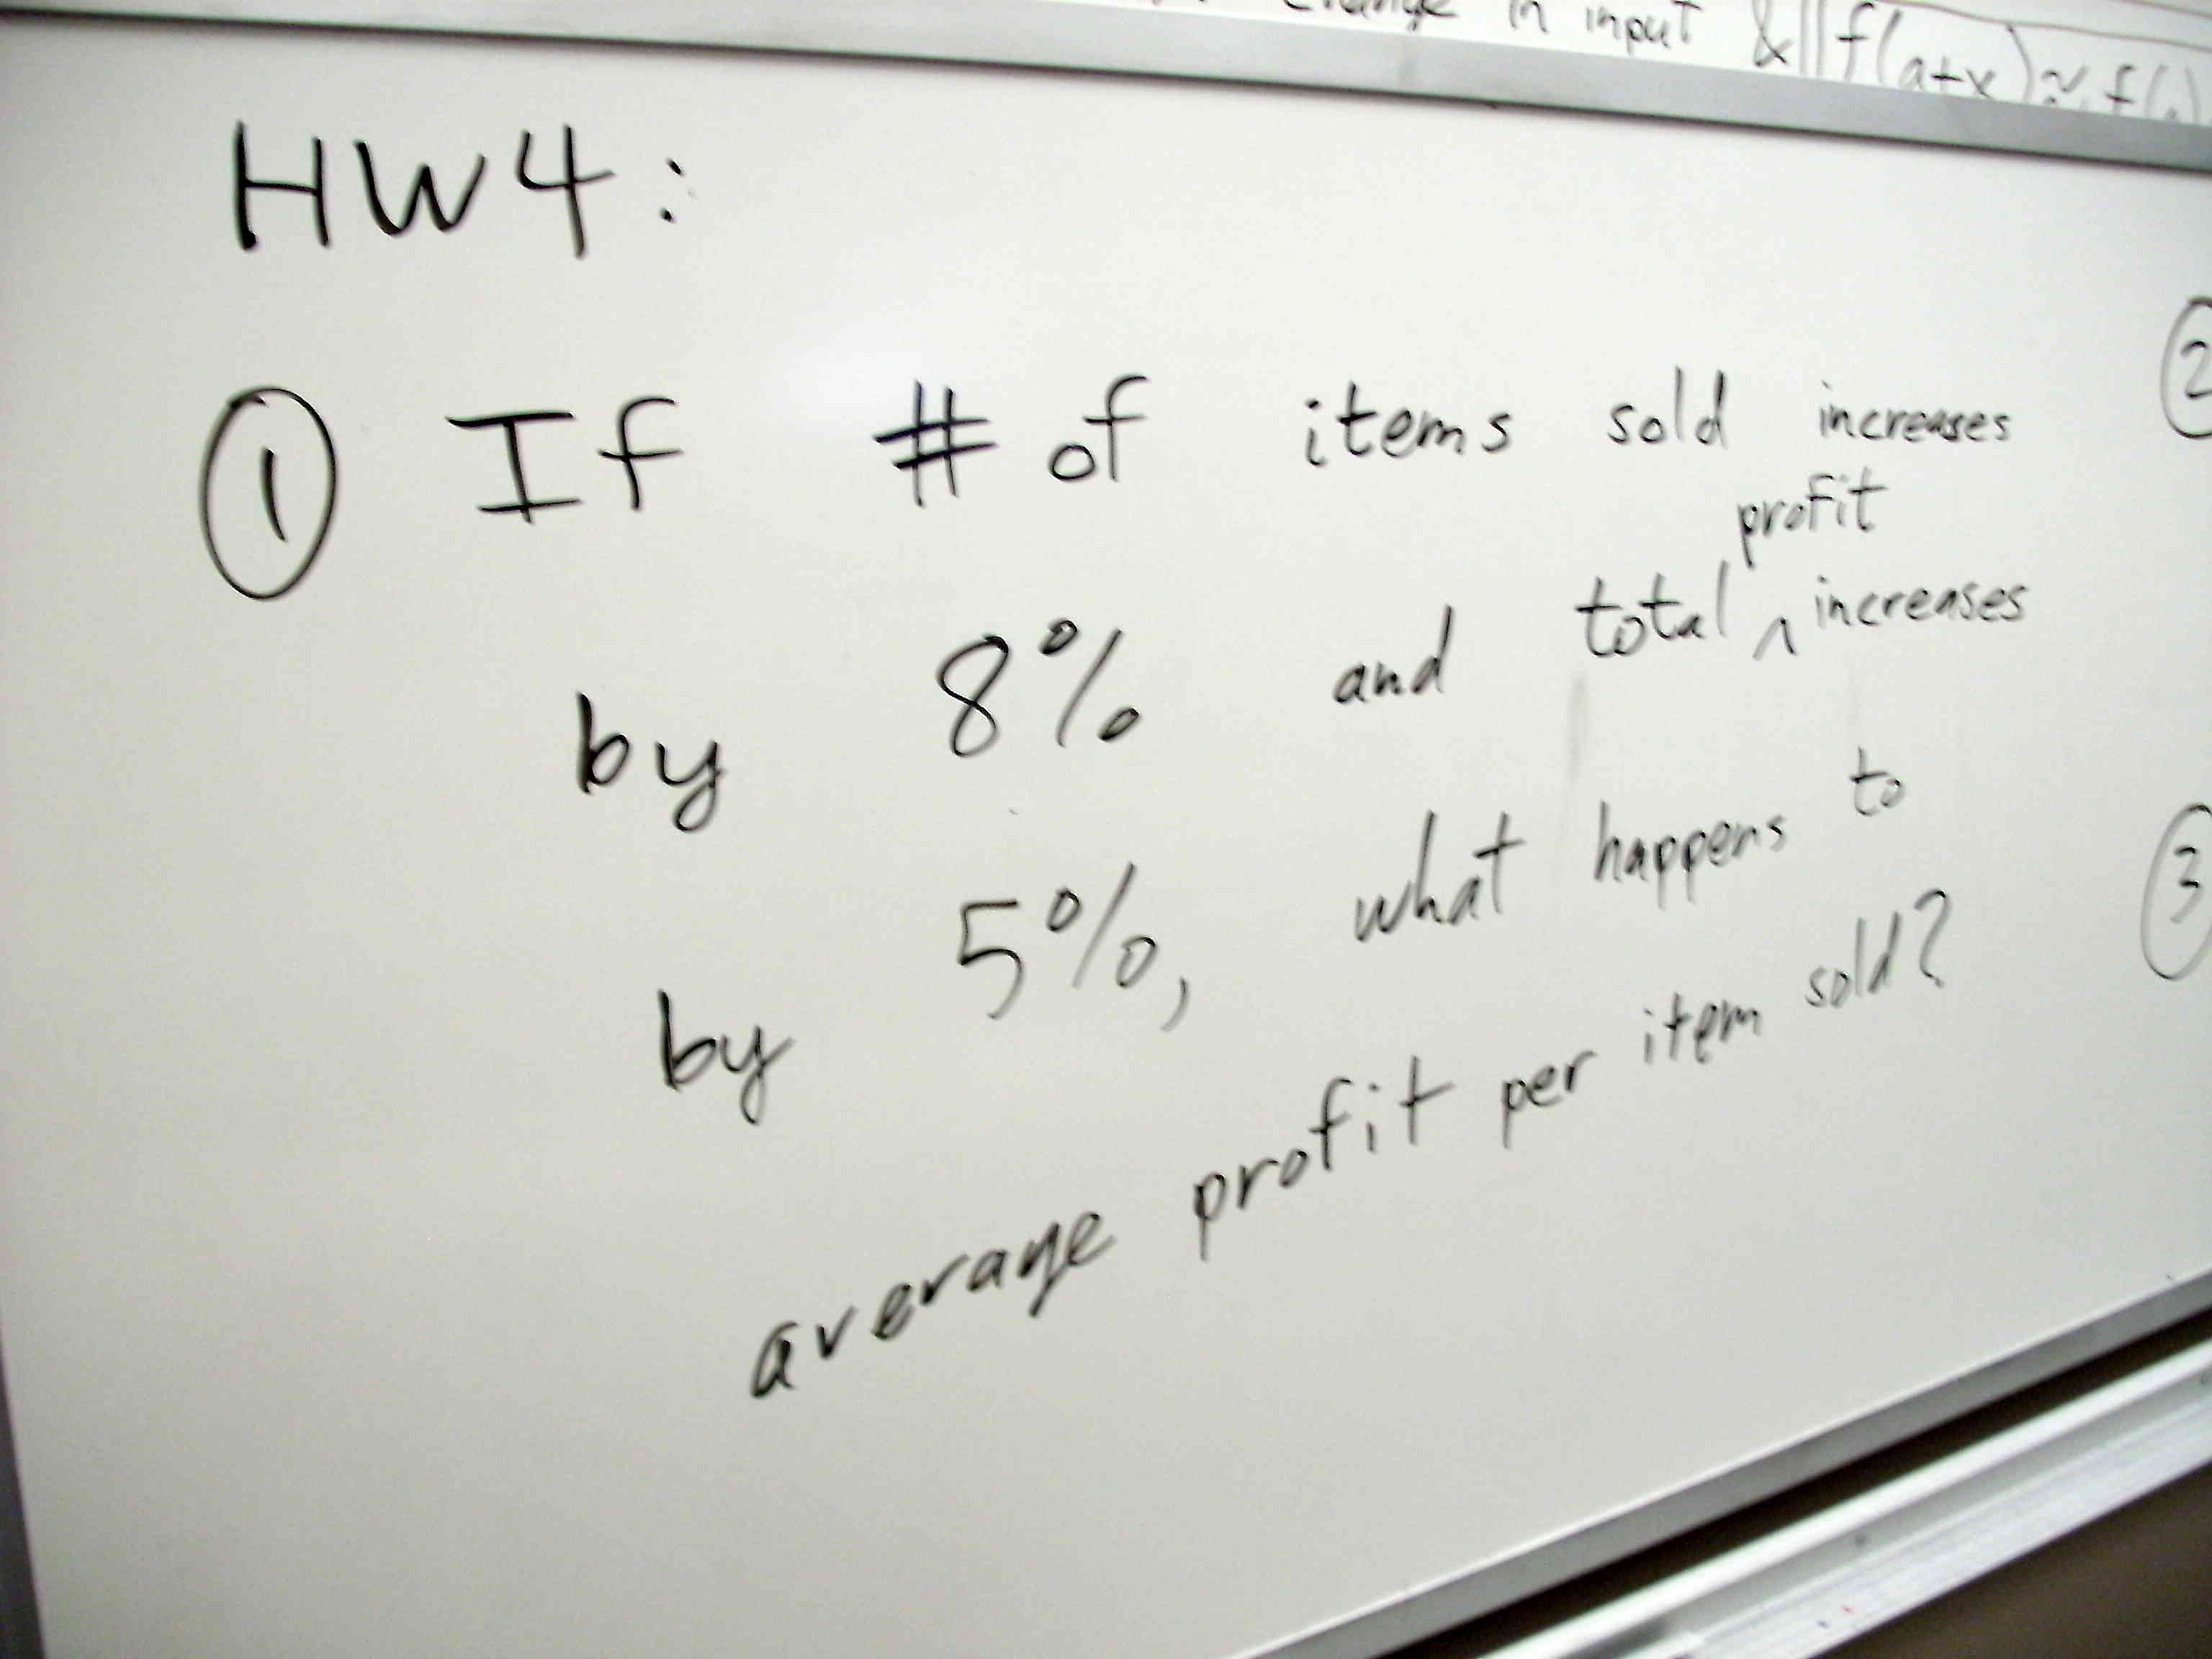 change in input & f(a+x) ≈ f(
HW4:
① If # of items sold increases
profit
by 8% and total ^ increases
by 5%, what happens to
average profit per item sold?
②
③